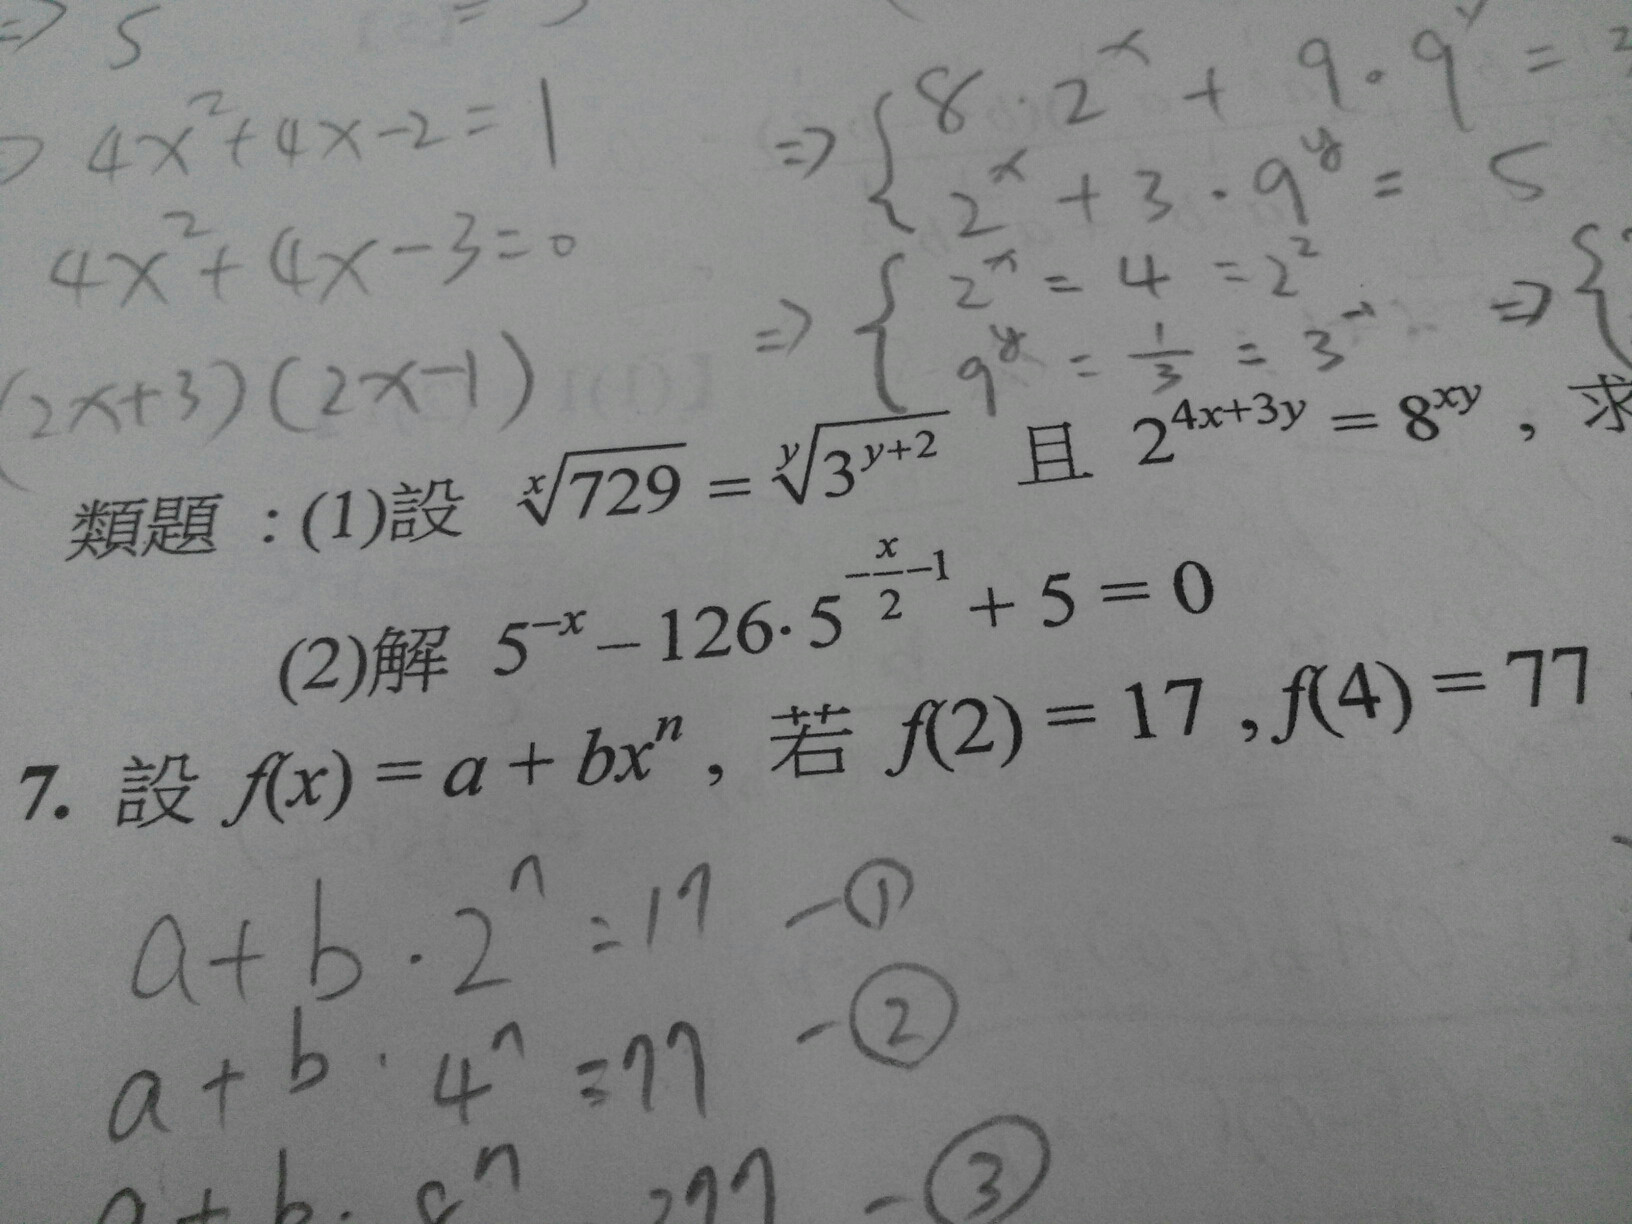 ⇒ 5 =
⇒ 4x²+4x-2=1
4x²+4x-3=0
(2x+3)(2x-1)
⇒ { 8·2^x + 9·9^y =
2^x + 3·9^y = 5
⇒ { 2^x = 4 = 2² ⇒ {
9^y = 1/3 = 3^-1
類題：(1)設 ˣ√729 = ʸ√3^(y+2) 且 2^(4x+3y) = 8^(xy) , 求
(2)解 5^(-x) – 126·5^(-x/2-1) + 5 = 0
7. 設 f(x) = a + bx^n , 若 f(2) = 17 , f(4) = 77
a + b·2^n = 17 -①
a + b·4^n = 77 -②
a + b·8^n 77 -③